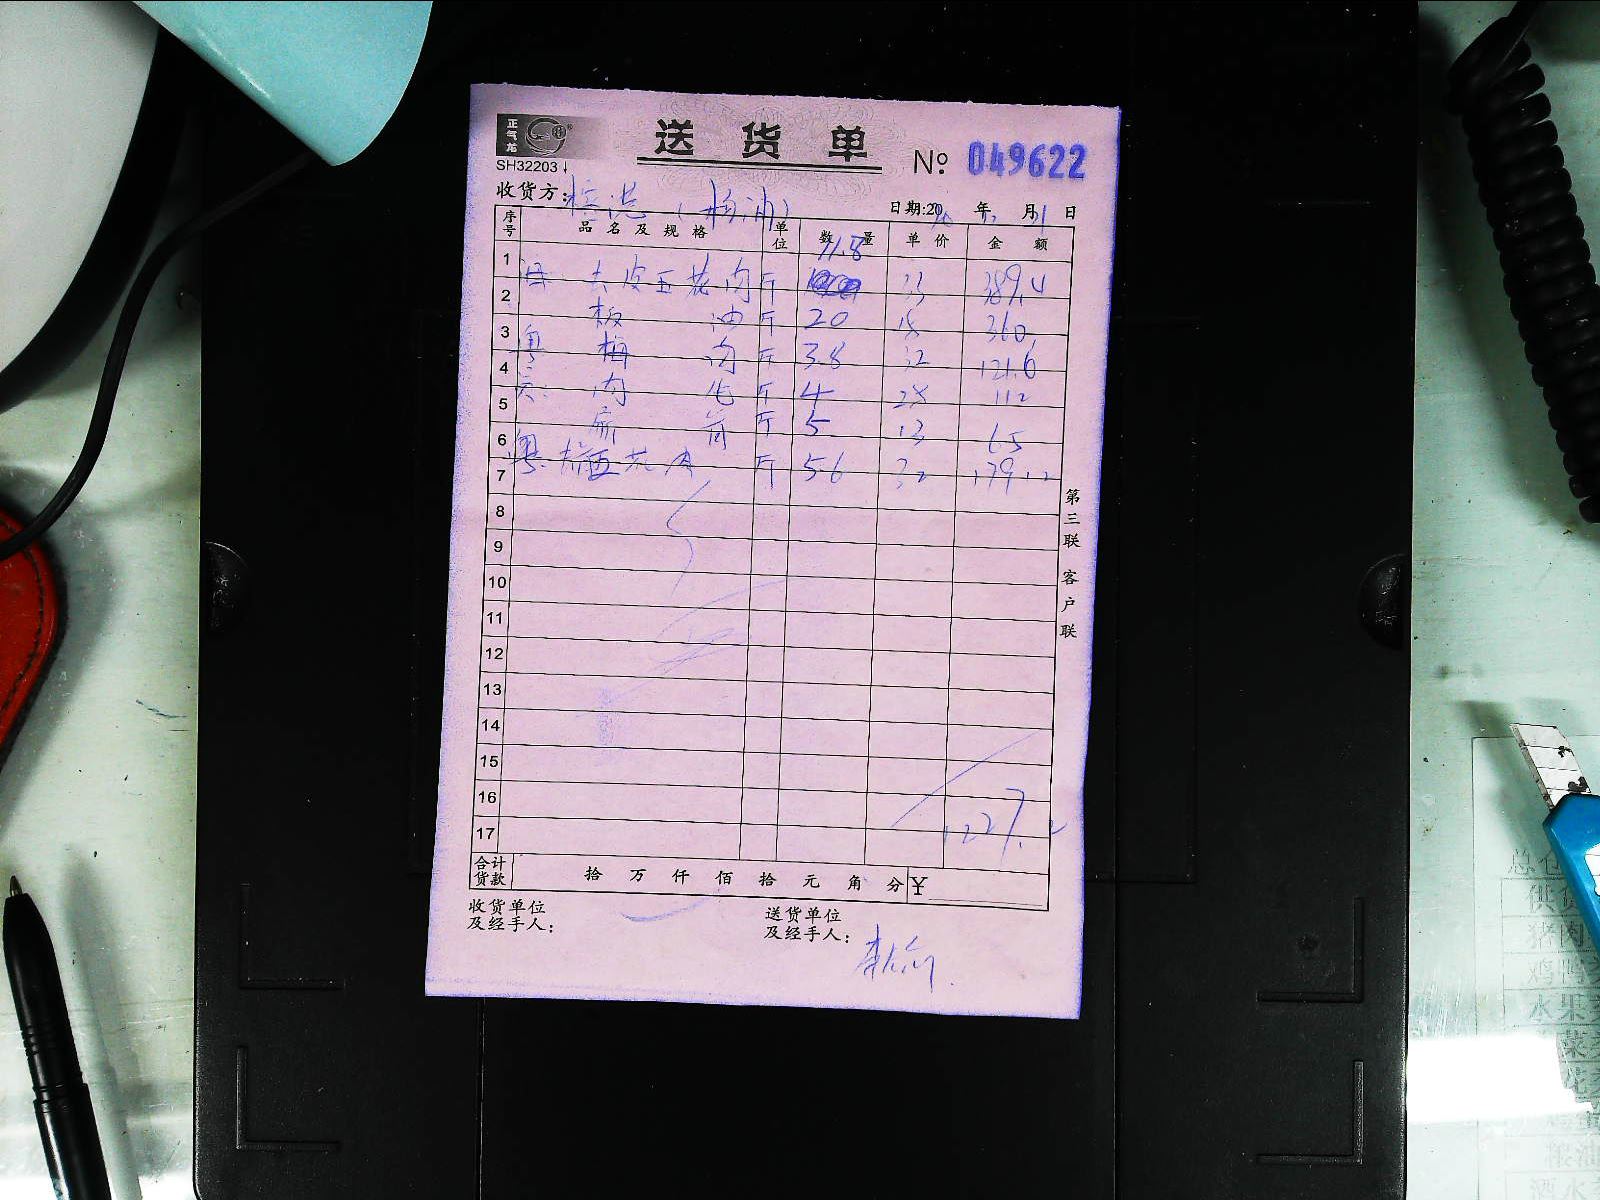 正气龙
送货单
SH32203
№ 049622
收货方：
日期:20 年 月31日
序号 品名及规格 单位 数量 单价 金额
11.8
1 去皮五花肉 斤 33 389.4
2 板油 斤 20 18 360
3 粤 梅肉 斤 3.8 32 121.6
4 肉 斤 4 28 112
5 斤 5 13 65
6 粤 五花肉 斤 5.6 32 179.12
7
8
9
10
11
12
13
14
15
16
17 1227.2
第三联 客户联
合计货款 拾 万 仟 佰 拾 元 角 分 ¥
收货单位及经手人：
送货单位及经手人：
总仓
供货
猪肉
鸡鸭
水果